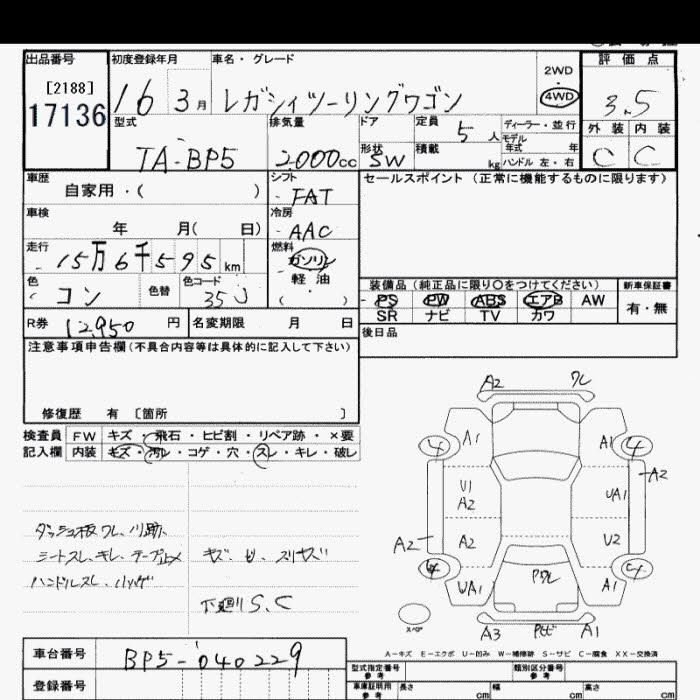 出品番号 初度登録年月 車名・グレード 評価点
[2188] 2WD
17136 16 3月 レガシィツーリングワゴン 4WD 3.5
型式 排気量 ドア 定員 5人 ディーラー・並行 外装 内装
モデル年式 年
TA-BP5 2000cc 形状 SW 積載 kg ハンドル 左・右 C C
車歴 シフト セールスポイント（正常に機能するものに限ります）
自家用・( ) FAT
車検 冷房
年 月( 日) AAC
走行 燃料
15万6千595km ガソリン
軽油
色 色替 色コード 装備品（純正品に限り○をつけてください） 新車保証書
コン 35J ( ) PS PW ABS エアB AW 有・無
SR ナビ TV カワ
R券 12,950円 名変期限 月 日 後日品
注意事項申告欄(不具合内容等は具体的に記入して下さい)
修復歴 有 [箇所 ]
検査員 FW キズ・飛石・ヒビ割・リペア跡・×要
記入欄 内装 キズ・汚レ・コゲ・穴・スレ・キレ・破レ
A2 ワレ
A1 A1
4 4
U1 A2 UA1 A2
A2 A2 U2
4 4
UA1 A1
スペア
A3 A1
ダッシュ板ワレ、
シートスレ、キレ、テープ止メ キズ
ハンドルスレ、ハゲ
下廻リS、C
A－キズ E－エクボ U－凹み W－補修跡 S－サビ C－腐食 XX－交換済
車台番号 BP5-040229 型式指定番号 参考 類別区分番号 参考
登録番号 車庫証明用 参考 長さ cm 幅 cm 高さ cm